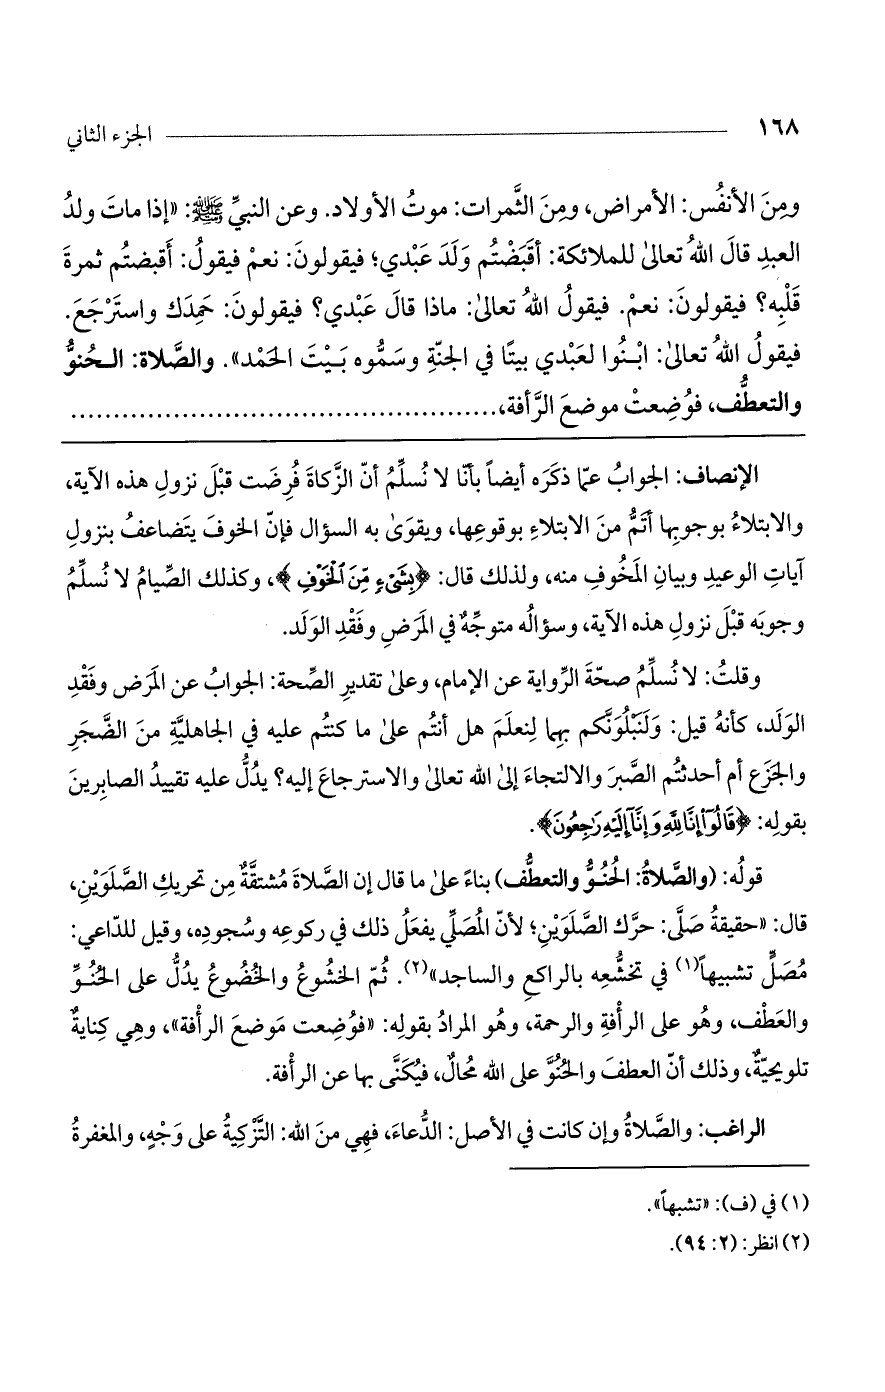 ١٦٨ ــــــــــــــــــــ الجزء الثاني
ومِنَ الأنفُس: الأمراض، ومِنَ الثَّمرات: موتُ الأولاد. وعن النبيِّ ﷺ: «إذا ماتَ ولدُ
العبدِ قالَ اللهُ تعالىٰ للملائكة: أقَبَضْتُم وَلَدَ عَبْدي؛ فيقولونَ: نعمْ فيقولُ: أَقبضتُم ثمرةَ
قَلْبِه؟ فيقولونَ: نعمْ. فيقولُ اللهُ تعالىٰ: ماذا قالَ عَبْدي؟ فيقولونَ: حَمِدَك واستَرْجَعَ.
فيقولُ اللهُ تعالىٰ: ابْنُوا لعَبْدي بيتًا في الجنّةِ وسَمُّوه بَيْتَ الحَمْد». والصَّلاة: الحُنوُّ
والتعطُّف، فوُضِعتْ موضعَ الرَّأفة،................................................
الإنصاف: الجوابُ عمّا ذكَرَه أيضاً بأنّا لا نُسلِّمُ أنّ الزَّكاةَ فُرِضَت قبْلَ نزولِ هذه الآية،
والابتلاءُ بوجوبِها أَتَمُّ منَ الابتلاءِ بوقوعِها، ويقوَىٰ به السؤال فإنّ الخوفَ يتَضاعفُ بنزولِ
آياتِ الوعيدِ وبيانِ المَخُوفِ منه، ولذلك قال: ﴿بِشَىْءٍ مِّنَ ٱلْخَوْفِ﴾، وكذلك الصِّيامُ لا نُسلِّمُ
وجوبَه قبْلَ نزولِ هذه الآية، وسؤالُه متوجِّهٌ في المَرَضِ وفَقْدِ الوَلَد.
وقلتُ: لا نُسلِّمُ صحّةَ الرِّواية عن الإمام، وعلىٰ تقديرِ الصِّحة: الجوابُ عن المَرَض وفَقْدِ
الوَلَد، كأنهُ قيل: وَلَنَبْلُوَنَّكم بهما لِنعلَمَ هل أنتُم علىٰ ما كنتُم عليه في الجاهليَّةِ منَ الضَّجَرِ
والجَزَع أم أحدثتُم الصَّبرَ والالتجاءَ إلىٰ الله تعالىٰ والاسترجاعَ إليه؟ يدُلُّ عليه تقييدُ الصابرينَ
بقولِه: ﴿قَالُوٓا۟ إِنَّا لِلَّهِ وَإِنَّآ إِلَيْهِ رَٰجِعُونَ﴾.
قولُه: (والصَّلاةُ: الحُنُوُّ والتعطُّف) بناءً علىٰ ما قال إن الصَّلاةَ مُشتقَّةٌ مِن تحريكِ الصَّلَوَيْنِ،
قال: «حقيقةُ صَلَّى: حرَّك الصَّلَوَيْنِ؛ لأنّ المُصَلِّي يفعَلُ ذلك في ركوعِه وسُجودِه، وقيل للدّاعي:
مُصَلٍّ تشبيهاً(١) في تخشُّعِه بالراكعِ والساجد»(٢). ثُمّ الخشُوعُ والخُضُوعُ يدُلُّ على الحُنُوِّ
والعَطْف، وهُو على الرأْفةِ والرحمة، وهُو المرادُ بقولِه: «فوُضِعت مَوضعَ الرأفة»، وهِي كِنايةٌ
تلويحيّةٌ، وذلك أنّ العطفَ والحُنُوَّ على الله مُحالٌ، فيُكَنَّى بها عن الرأْفة.
الراغب: والصَّلاةُ وإن كانت في الأصل: الدُّعاءَ، فهِي منَ الله: التَّزْكِيةُ على وَجْهٍ، والمغفرةُ
(١) في (ف): «تشبهاً».
(٢) انظر: (٢: ٩٤).